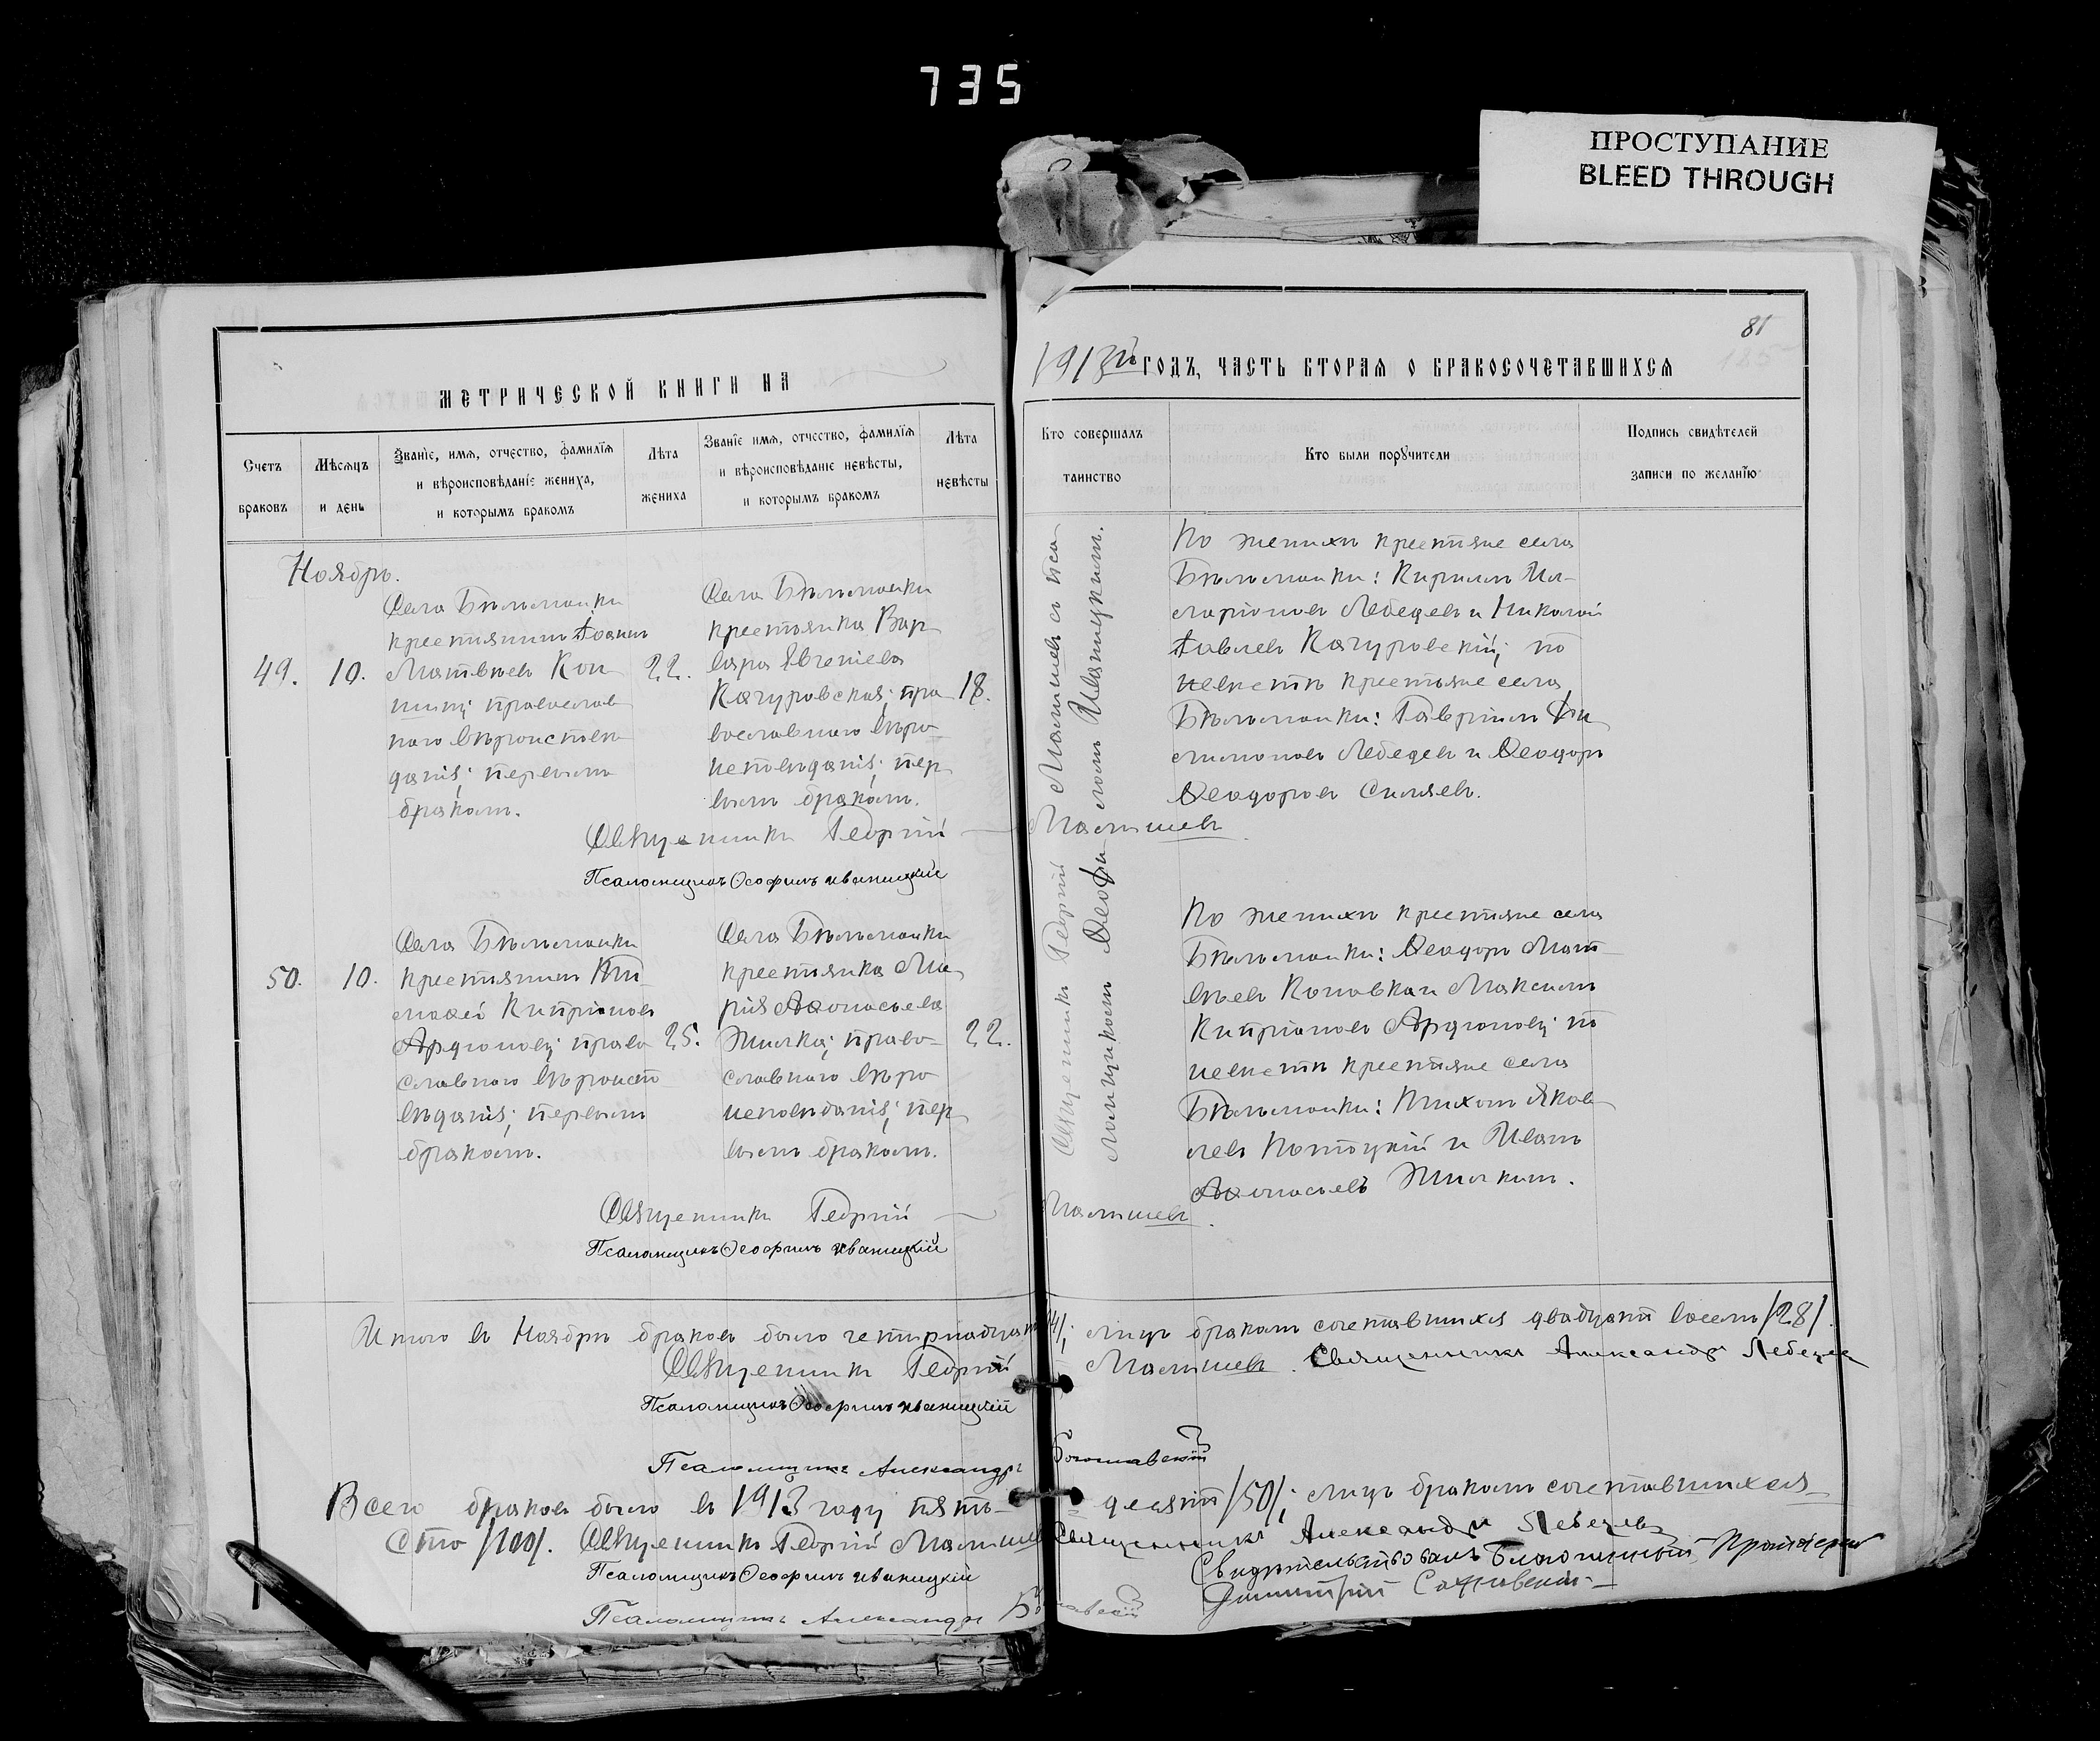 735
ПРОСТУПАНИЕ
BLEED THROUGH
81
МЕТРИЧЕСКОЙ КНИГИ НА
1913й ГОДЪ, ЧАСТЬ ВТОРАЯ О БРАКОСОЧЕТАВШИХСЯ
Счетъ браковъ
Мѣсяцъ и день
Званіе, имя, отчество, фамилія
и вѣроисповѣданіе жениха,
и которымъ бракомъ
Лѣта жениха
Званіе имя, отчество, фамилія
и вѣроисповѣданіе невѣсты,
и которымъ бракомъ
Лѣта невѣсты
Кто совершалъ
таинство
Кто были поручители
Подпись свидѣтелей
записи по желанію
Ноябрь.
49.
10.
Села Бѣльманки
крестьянинъ Іоаннъ
Матвѣевъ Кон
православ
наго вѣроисповѣ
данія; первымъ
бракомъ.
22.
Села Бѣльманки
крестьянка Вар
вара Евгеніева
Качуровская; пра
вославнаго вѣро
исповѣданія; пер
вымъ бракомъ.
18.
Священникъ Георгій
Псаломщикъ Ѳеофилъ Иваницкій
По женихѣ крестьяне села
Бѣльманки: Кириллъ Ил-
ларіоновъ Лебедевъ и Николай
Павловъ Качуровскій; по
невѣстѣ крестьяне села
Бѣльманки: Гавріилъ Фи
лимоновъ Лебедевъ и Ѳеодоръ
Ѳеодоровъ Силяевъ.
50.
10.
Села Бѣльманки
крестьянинъ Ти
моѳей Кипріановъ
Ардоновъ; право
славнаго вѣроисп
вѣданія; первымъ
бракомъ.
25.
Села Бѣльманки
крестьянка Ма
рія Аѳанасьева
Жилка; право-
славнаго вѣро
исповѣданія; пер
вымъ бракомъ.
22.
Священникъ Георгій
Псаломщикъ Ѳеофилъ Иваницкій
Священникъ Георгій
ломщикомъ Ѳеофиломъ Иваницкимъ.
По женихѣ крестьяне села
Бѣльманки: Ѳеодоръ Мат
вѣевъ Коновка и Максимъ
Кипріановъ Ардоновъ; по
невѣстѣ крестьяне села
Бѣльманки: Тихонъ Яков
левъ Потоцкій и Иванъ
Аѳанасьевъ Жилкинъ.
Итого въ Ноябрѣ браковъ было четырнадцать /14/; лицъ бракомъ сочетавшихся двадцать восемь /28/.
Священникъ Георгій
Священникъ Александръ Лебедев
Псаломщикъ Ѳеофилъ Иваницкій
Псаломщикъ Александръ Богославскій
Всего браковъ было въ 1913 году пять-десятъ /50/; лицъ бракомъ сочетавшихся
сто /100/. Священникъ Георгій
Священникъ Александръ Лебедевъ
Псаломщикъ Ѳеофилъ Иваницкій
Свидѣтельствовалъ Благочинный Протоіерей
Димитрій
Псаломщикъ Александръ